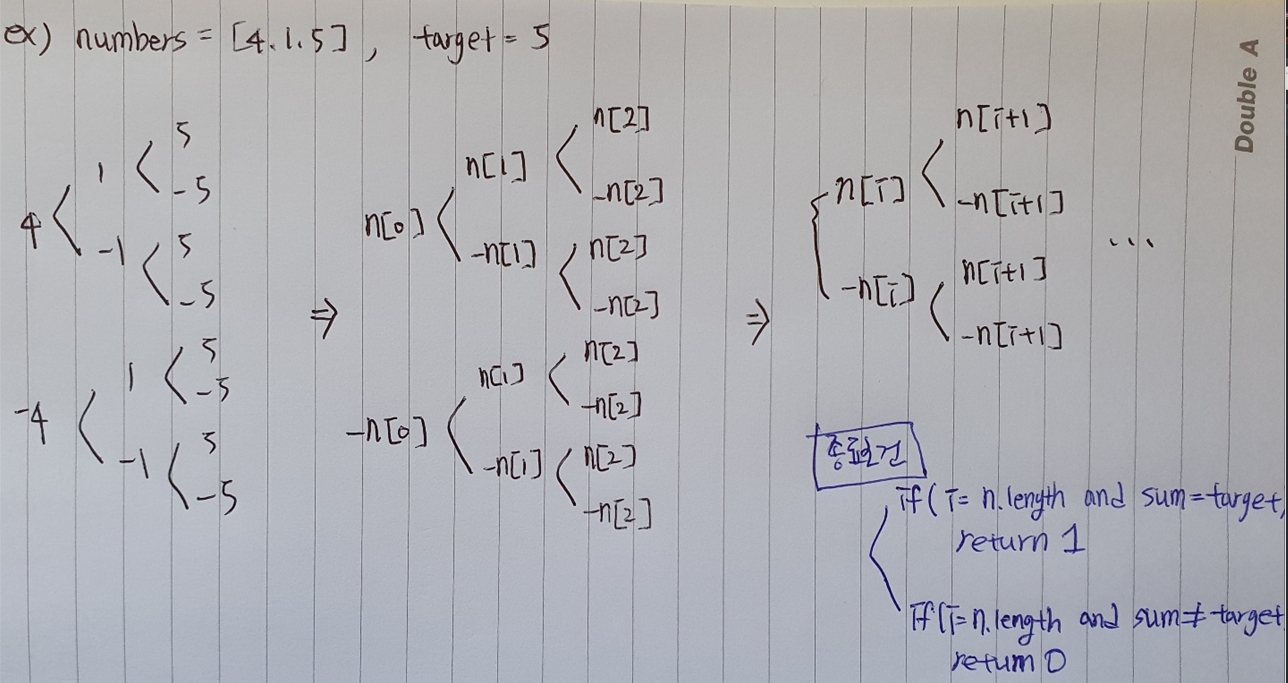 ex) numbers = [4.1.5], target = 5
Double A
4
1
5
-5
-1
5
-5
-4
1
5
-5
-1
5
-5
⇒
n[0]
n[1]
n[2]
-n[2]
-n[1]
n[2]
-n[2]
-n[0]
n[1]
n[2]
-n[2]
-n[1]
n[2]
-n[2]
⇒
n[i]
n[i+1]
-n[i+1]
-n[i]
n[i+1]
-n[i+1]
...
종료조건
if( i= n.length and sum=target,
return 1
if(i=n.length and sum≠target
return 0